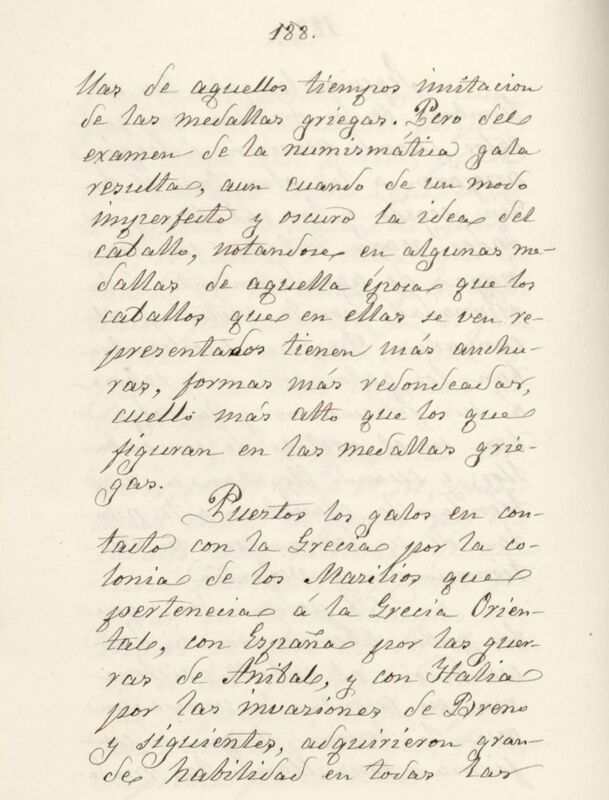 188.
llas de aquellos tiempos imitacion
de las medallas griegas. Pero del
examen de la numismática gala
resulta, aun cuando de un modo
imperfecto y oscuro la idea del
caballo, notandose en algunas me-
dallas de aquella época que los
caballos que en ellas se ven re-
presentados tienen más anchu-
ras, formas más redondeadas,
cuello más alto que los que
figuran en las medallas grie-
gas.
Puestos los galos en con-
tacto con la Grecia por la co-
lonia de los Marilios que
pertenecia á la Grecia Orien-
tal, con España por las guer-
ras de Anibal, y con Italia
por las invasiones de Breno
y siguientes, adquirieron gran-
de habilidad en todas las